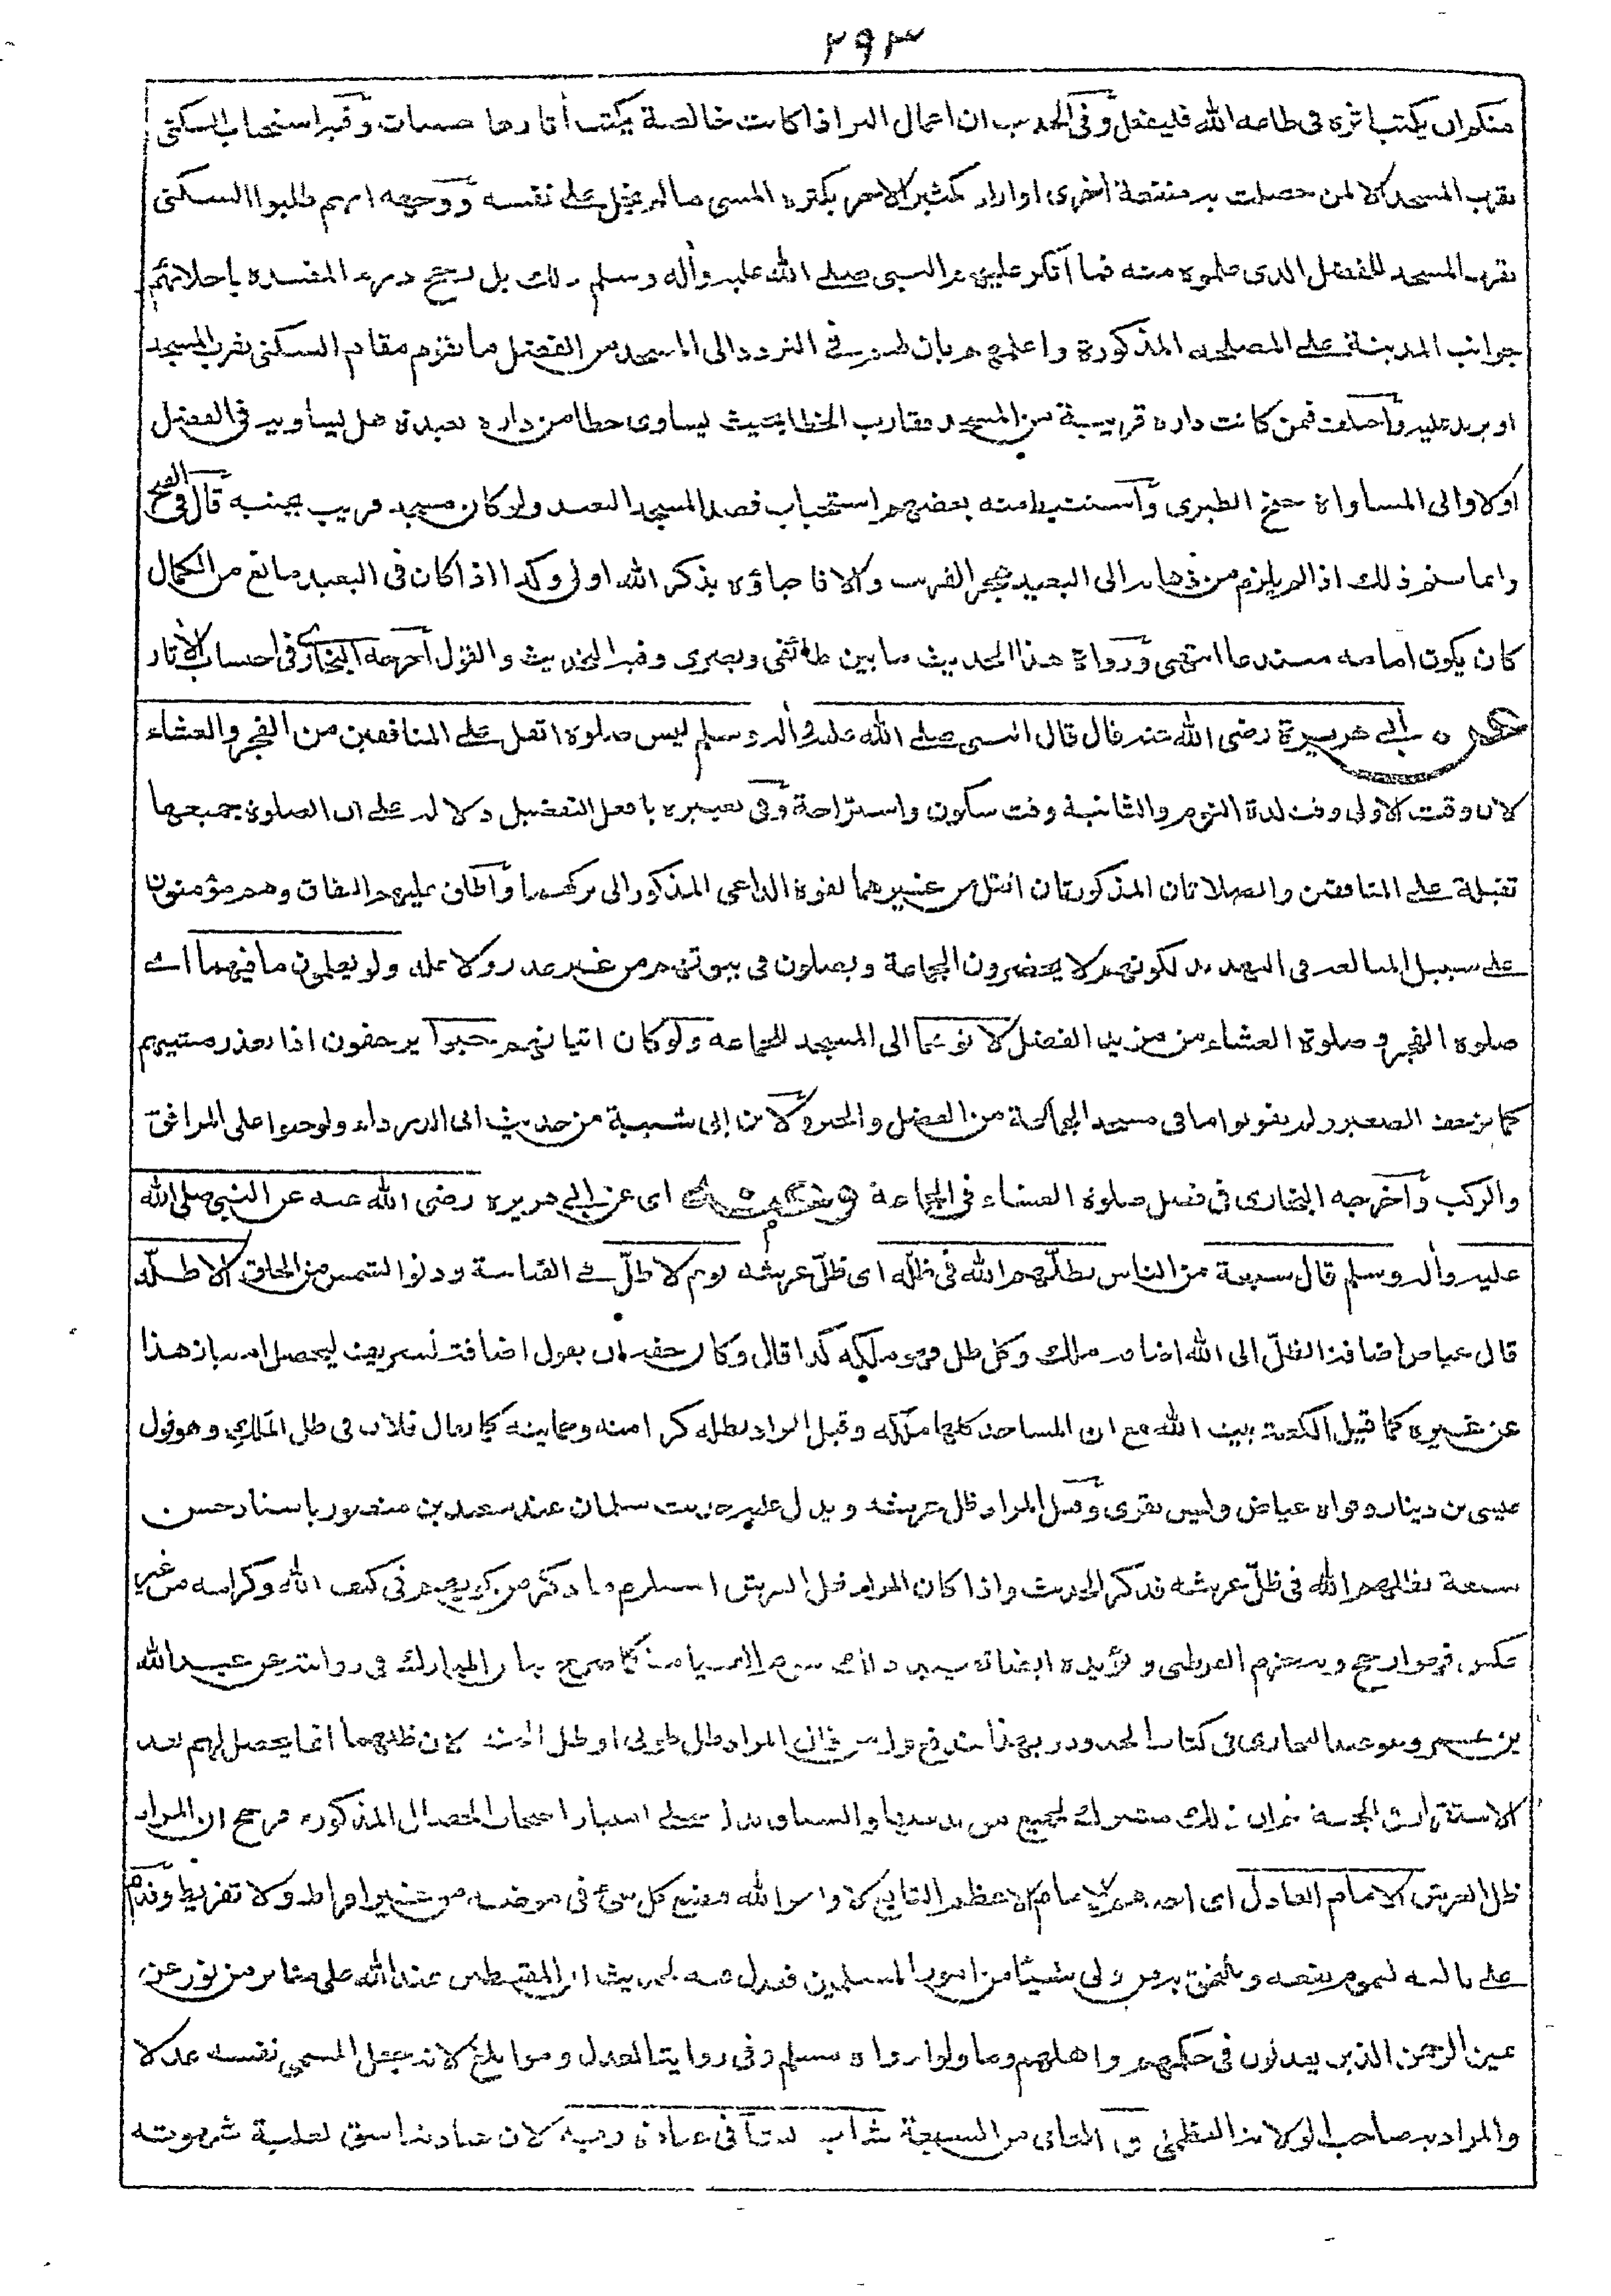 ٢٩٣
منكم ان يكتب اثره فى طاعه الله فليفعل وفى الحديث ان اعمال البر اذا كانت خالصة يكتب أثارها حسنات وفيه استحباب السكنى
بقرب المسجد الا لمن حصلت به منفعة أخرى او اراد تكثير الاجر بكثرة المشى ما لم يحمل على نفسه ووجهه انهم طلبوا السكنى
بقرب المسجد للفضل الذى علموه منه فما أنكر عليهم النبى صلى الله عليه وأله وسلم ذلك بل رجح درء المفسدة باخلائهم
جوانب المدينة على المصلحه المذكورة واعلمهم بان لهم فى التردد الى المسجد من الفضل ما يقوم مقام السكنى بقرب المسجد
او يزيد عليه وأختلف فمن كانت داره قريبة من المسجد فقارب الخطا بحيث يساوى خطا من داره بعيدة هل يساويه فى الفضل
اولا والى المساواة جنح الطبرى وأستنبط منه بعضهم استحباب قصد المسجد البعيد ولو كان مسجد قريب بجنبه قال فى الفتح
وانما يتم ذلك اذا لم يلزم من ذهابه الى البعيد هجر القريب والا فاحياؤه بذكر الله اولى وكذا اذا كان فى البعيد مانع من الكمال
كان يكون امامه مبتدعا انتهى ورواة هذا الحديث ما بين طائفى وبصرى وفيه التحديث والقول أخرجه البخارى فى احتساب الأثار
عن ابى هريرة رضى الله عنه قال قال النبى صلى الله عليه وأله وسلم ليس صلوة اثقل على المنافقين من الفجر والعشاء
لان وقت الاولى وقت لذة النوم والثانية وقت سكون واستراحة وفى تعبيره بافعل التفضيل دلالة على ان الصلوة جميعها
ثقيلة على المنافقين والصلاتان المذكورتان اثقل من غيرهما لقوة الداعى المذكور الى تركهما وأطلق عليهم النفاق وهم مؤمنون
على سبيل المبالغه فى التهديد لكونهم لا يحضرون الجماعة ويصلون فى بيوتهم من غير عذر ولا علة ولو يعلمون ما فيهما اى
صلوة الفجر وصلوة العشاء من مزيد الفضل لأتوهما الى المسجد للجماعه ولو كان اتيانهم حبوا يزحفون اذا تعذر مشيهم
كما يزحف الصغير ولم يفوتوا ما فى مسجد الجماعة من الفضل والخير ولابن ابى شيبة من حديث ابى الدرداء ولو حبوا على المرافق
والركب وأخرجه البخارى فى فضل صلوة العشاء فى الجماعة وعنه اى عن ابى هريرة رضى الله عنه عن النبى صلى الله
عليه وأله وسلم قال سبعة من الناس يظلّهم الله فى ظلّه اى ظلّ عرشه يوم لا ظلّ فى القيامة ودنو الشمس من الخلق الا ظلّه
قال عياض اضافة الظلّ الى الله اضافة ملك وكل ظل فهو ملكه كذا قال وكان حقه ان يقول اضافة تشريف ليحصل امتياز هذا
عن غيره كما قيل الكعبة بيت الله مع ان المساجد كلها ملكه وقيل المراد بظله كرامته وحمايته كما يقال فلان فى ظل الملك وهو قول
عيسى بن دينار وقواه عياض وليس بقوى وقيل المراد ظل عرشه ويدل عليه حديث سلمان عند سعيد بن منصور باسناد حسن
سبعة يظلهم الله فى ظلّ عرشه فذكر الحديث واذا كان المراد ظل العرش استلزم ما ذكر من كونهم فى كنف الله وكرامته من غير
عكس فهو ارجح وبه جزم القرطبى ويؤيده ايضا تقييد ذلك بيوم القيامة كما صرح به ابن المبارك فى روايته عن عبيد الله
بن عمر وهو عند البخارى فى كتاب الحدود وبهذا يندفع قول من قال المراد ظل طوبى او ظل الجنة لان ظلهما انما يحصل لهم بعد
الاستقرار فى الجنة ثم ان ذلك مشترك لجميع من يدخلها والسياق يدل على امتياز اصحاب الخصال المذكورة فرجح ان المراد
ظل العرش الامام العادل اى احدهم الامام الاعظم التابع لاوامر الله فيضع كل شئ فى موضعه من غير افراط ولا تفريط وقدم
على تاليه لعموم نفعه ويلتحق به من ولى شيئا من امور المسلمين فعدل فيه لحديث ان المقسطين عند الله على منابر من نور عن
يمين الرحمن الذين يعدلون فى حكمهم واهلهم وما ولوا رواه مسلم وفى رواية العدل وهو ابلغ لانه جعل المسمى نفسه عدلا
والمراد به صاحب الولاية العظمى و الثانى من السبعة شاب نشأ فى عبادة ربه لان عبادته اشق لغلبة شهوته